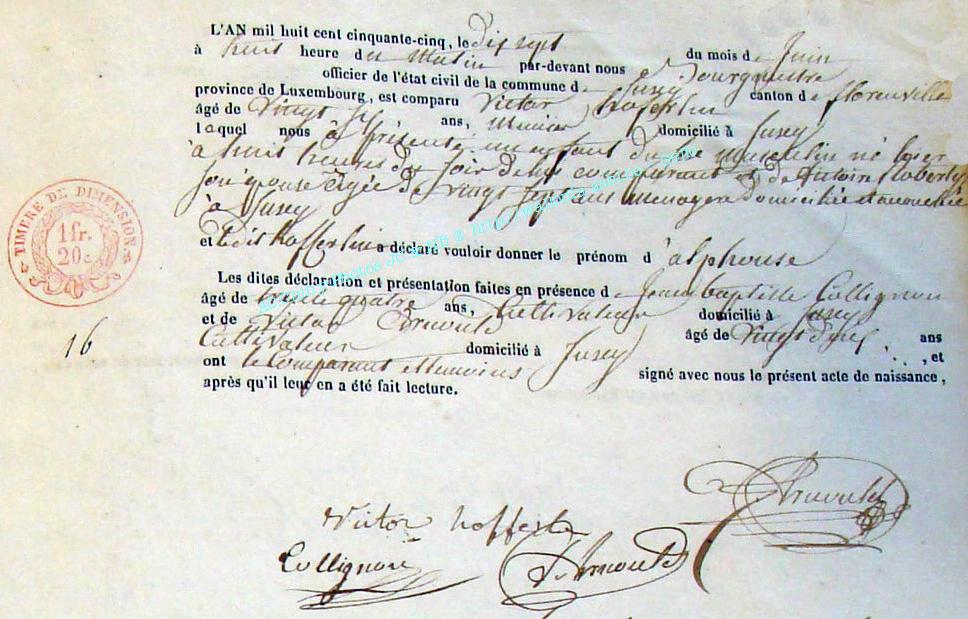 L'AN mil huit cent cinquante-cinq, le dix sept
du mois de Juin
à huit heure du matin par-devant nous Bourgmestre
officier de l'état civil de la commune de Jusey canton de florenville
province de Luxembourg, est comparu Victor hofferlin
âgé de Vingt ans, domicilié à Jusey
lequel nous à présenté un enfant du Sexe Masculin né hier
à huit heures du soir de lui comparant et de
Son épouse âgée de vingt sept ans menagere domiciliée
à Jusey
et Ledit hofferlin a déclaré vouloir donner le prénom d'alphonse
Les dites déclaration et présentation faites en présence de Jean baptiste Collignon
âgé de trente quatre ans, Cultivateur domicilié à Jusey
et de Victor Arnould âgé de Vingt ans
Cultivateur domicilié à Jusey, et
ont le Comparant et temoins signé avec nous le présent acte de naissance,
après qu'il leur en a été fait lecture.
TIMBRE DE DIMENSION
1 fr.
20 c
16
Arnould
Victor hofferlin
Collignon
V. Arnould